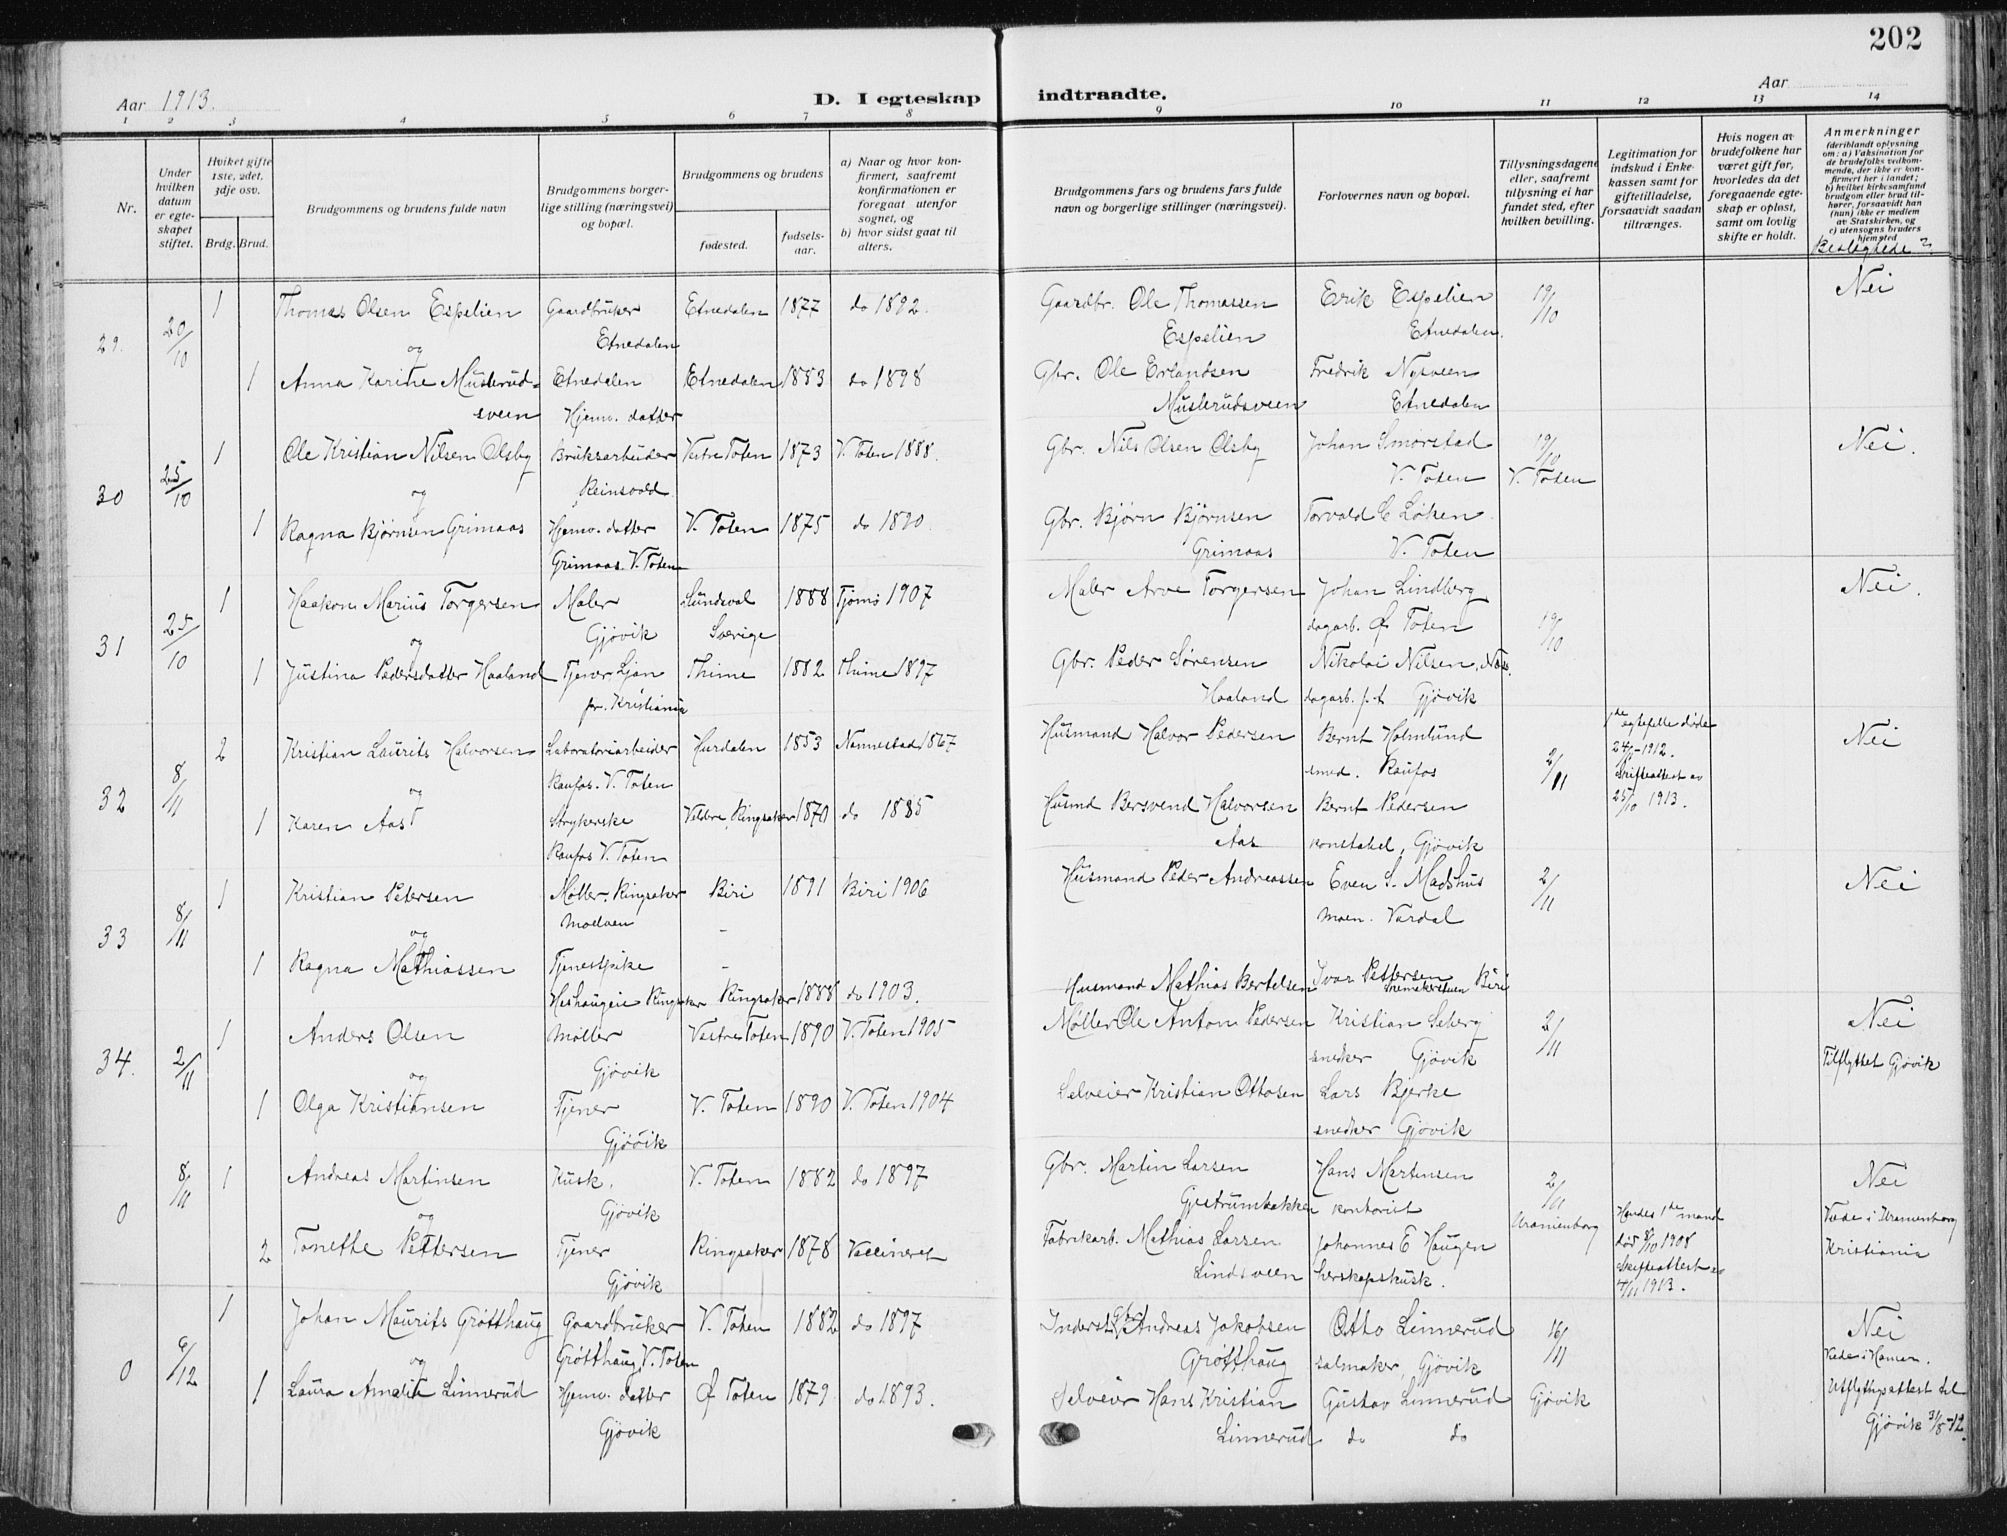 202
Aar 1913.
D. I egteskap indtraadte.
Aar
1 2 3 4 5 6 7 8 9 10 11 12 13 14
Nr.
Under hvilken datum er egteskapet stiftet.
Hviket gifte 1ste, 2det, 3dje osv.
Brdg. Brud.
Brudgommens og brudens fulde navn
Brudgommens borgerlige stilling (næringsvei) og bopæl.
Brudgommens og brudens
fødested.
fødselsaar.
a) Naar og hvor konfirmert, saafremt konfirmationen er foregaat utenfor sognet, og
b) hvor sidst gaat til alters.
Brudgommens fars og brudens fars fulde navn og borgerlige stillinger (næringsvei).
Forlovernes navn og bopæl.
Tillysningsdagene eller, saafremt tillysning ei har fundet sted, efter hvilken bevilling.
Legitimation for indskud i Enkekassen samt for giftetilladelse, forsaavidt saadan tiltrænges.
Hvis nogen av brudefolkene har været gift før, hvorledes da det foregaaende egteskap er opløst, samt om lovlig skifte er holdt.
Anmerkninger
(deriblandt oplysning om: a) Vaksination for de brudefolks vedkommende, der ikke er konfirmert her i landet; b) hvilket kirkesamfund brudgom eller brud tilhører, forsaavidt han (hun) ikke er medlem av Statskirken, og c) utensogns bruders hjemsted
Beslegtede?
29. 20/10 1 Thomas Olsen Espelien Gaardbruker Etnedalen 1877 do 1892. Gaardbr. Ole Thomassen Erik Espelien 19/10 Nei
og Etnedalen Espelien Etnedalen.
1 Anna Karine Muslerud- Etnedalen Etnedalen 1883 do 1898 Gbr. Ole Erlandsen Fredrik Nysveen
sveen Hjemv. datter Muslerudsveen Etnedalen
30 25/10 1 Ole Kristian Nilsen Olsby Bruksarbeider Vestre Toten 1873 V. Toten 1888. Gbr. Nils Olsen Olsby Johan Smørstad 19/10 Nei.
og Reinsvold V. Toten V. Toten
1 Ragna Bjørnsen Grimaas Hjemv. datter V. Toten 1875 do 1890. Gbr. Bjørn Bjørnsen Torvald C Løken
Grimaas. V. Toten Grimaas V. Toten
31 25/10 1 Haakon Marius Torgersen Maler Sundsval 1888 Tjømø 1907 Maler Arve Torgersen Johan Lindberg 19/10 Nei.
og Gjøvik Sverige dagarb. Ø Toten
1 Justina Pedersdatter Haaland Tjener Ljan Thime 1882 Thime 1897 Gbr. Peder Sørensen Nikolai Nilsen, Næs
pr. Kristiania Haaland dagarb. p.t Gjøvik
32 8/11 2 Kristian Laurits Halvorsen Laboratoriarbeider Hurdalen 1853 Nannestad 1867 Husmand Halvor Pedersen Bernt Holmlund 2/11 1de egtefelle døde Nei
og Raufos. V. Toten smed. Raufos 24/5-1912.
1 Karen Aas Strykerske Veldre, Ringsaker 1870 do 1885 Husmd Bersvend Halvorsen Bernt Pedersen Skifteattest av
Raufos V. Toten Aas konstabel, Gjøvik 25/10 1913.
33 8/11 1 Kristian Petersen Møller. Ringsaker Biri 1891 Biri 1906 Husmand Peder Andreassen Even S. Madshus 2/11 Nei
og Moelven moen. Vardal
1 Ragna Mathiassen Tjenestpike
Heshaugeie Ringsaker Ringsaker 1888 do 1903. Husmand Mathias Bertelsen Ivar Pettersen Biri
34. 2/11 1 Anders Olsen Møller Vestre Toten 1890 V. Toten 1905 Møller Ole Anton Pedersen Kristian Seberg 2/11 Nei
og Gjøvik snedker Gjøvik Tilflyttet Gjøvik
1 Olga Kristiansen Tjener V. Toten 1890 V. Toten 1904 Selveier Kristian Ottosen Lars Bjerke
Gjøvik snedker Gjøvik
0 8/11 1 Andreas Martinsen Kusk. V. Toten 1882 do 1897 Gbr. Martin Larsen Hans Martinsen 2/11 Nei
og Gjøvik Gjestrumbakken kontorist Uranienborg Hendes 1de mand Viede i Uranienborg
2 Tonethe Pettersen Tjener Ringsaker 1878 Vaccineret Fabrikarb. Mathias Larsen Johannes E Haugen død 8/10 1908 Kristiania
Gjøvik Lindsveen herskapskusk. Skifteattest av
4/11 1913.
0 6/12 1 Johan Maurits Grøtthaug Gaardbruker V. Toten 1882 do 1897 Inderst, Gbr. Andreas Jakobsen Otto Linnerud 16/11 Nei
og Grøtthaug V. Toten Grøtthaug salmaker, Gjøvik Viede i Hamar.
1 Laura Amalie Linnerud Hjemv. datter Ø Toten 1879 do 1893. Selveier Hans Kristian Gustav Linnerud Gjøvik Utflytngsattest til
Gjøvik Linnerud do do Gjøvik 31/8-12.